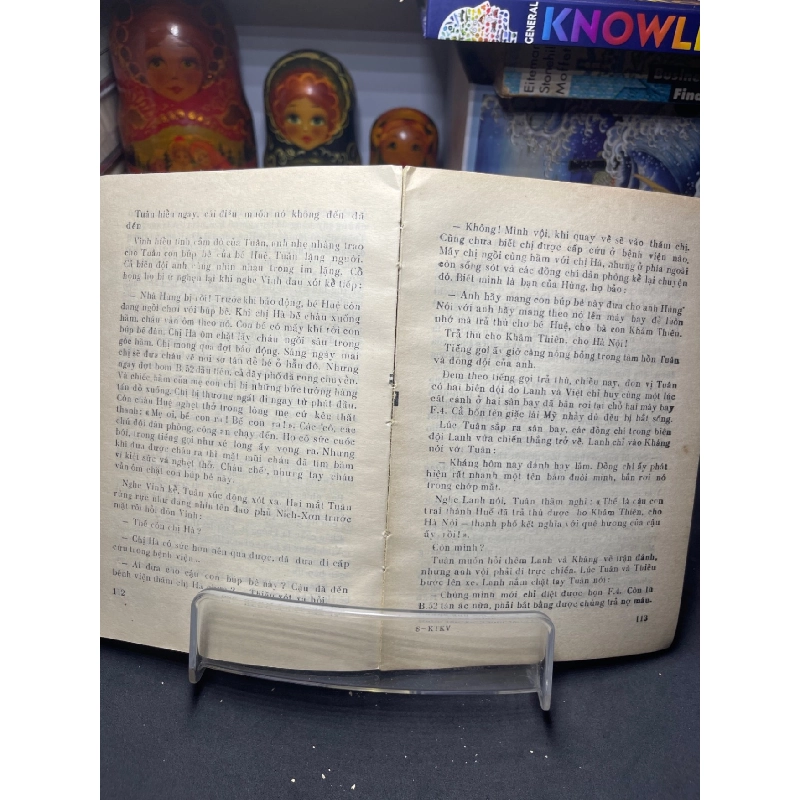 GENERAL KNOWL
Business
Finc
Tuấn hiểu ngay, cái điều muốn nó không đến đã
đến
Vinh hiểu tình cảm đó của Tuấn, anh nhẹ nhàng trao
cho Tuấn con búp bê của bé Huệ. Tuấn lặng người.
Cả biên đội anh cũng nhìn nhau trong im lặng. Cổ
họng họ bị ứ nghẹn lại khi nghe Vinh đau xót kể tiếp:
— Nhà Hưng bị rồi! Trước khi báo động, bé Huệ còn
đang ngồi chơi với búp bê. Khi chị Hà bế cháu xuống
hầm, cháu vẫn ôm theo nó. Con bé có mấy khi rời con
búp bê đâu. Chị Hà ôm chặt lấy cháu ngồi sâu trong
góc hầm. Chị mong qua đợt báo động. Sáng ngày mai
chị sẽ đưa cháu về nơi sơ tán để bé ở hẳn đó. Nhưng
đợt bom B.52 đầu tiên, cả dãy phố đã rung chuyển.
Và chiếc hầm của mẹ con chị bị những bức tường hàng
tấn đổ xuống. Chị bị thương ngất đi ngay từ phút đầu.
Còn cháu Huệ nghẹt thở trong lòng mẹ cứ kêu thất
thanh: «Mẹ ơi, bế con ra! Bế con ra!». Các cô, các
chú dân phòng, công an chạy đến. Họ có sức cuốc
bới, trong tiếng gọi như xé lòng ấy vọng ra. Nhưng
khi đưa được cháu ra thì mặt mũi cháu đã tím bầm
vì kiệt sức và nghẹt thở. Cháu chết, nhưng tay cháu
vẫn ôm chặt con búp bê này.
Nghe Vinh kể, Tuấn xúc động, xót xa. Hai mắt Tuấn
rằng rực như đang nhìn lên đầu phủ Ních-Xơn trước
mặt rồi hỏi dồn Vinh:
— Thế còn chị Hà?
— Chị Hà có sức hơn nên qua được, đã đưa đi cấp
cứu trong bệnh viện...
— Ai đưa cho cậu con búp bê này? Cậu đã đến
bệnh viện thăm chị Hà Thiêu xót xa hỏi
112
— Không! Mình vội, khi quay về sẽ vào thăm chị.
Cũng chưa biết chị được cấp cứu ở bệnh viện nào.
Mấy chị ngồi cùng hầm với chị Hà, nhưng ở phía ngoài
còn sống sót và các đồng chí dân phòng kể lại chuyện
đó. Biết mình là bạn của Hưng, họ bảo:
— Anh hãy mang con búp bê này đưa cho anh Hưng
Nói với anh hãy mang theo nó lên máy bay để luôn
nhớ mà trả thù cho bé Huệ, cho bà con Khâm Thiên.
Trả thù cho Khâm Thiên, cho Hà Nội!
Tiếng gọi ấy giờ càng nóng bỏng trong tâm hồn Tuấn
và đồng đội của anh.
Đem theo tiếng gọi trả thù, chiều nay, đơn vị Tuấn
có hai biên đội do Lanh và Việt chỉ huy cùng một lúc
cất cánh ở hai sân bay đã bắn rơi tại chỗ hai máy bay
F.4. Cả bốn tên giặc lái Mỹ nhảy dù đều bị bắt sống.
Lúc Tuấn sắp ra sân bay, các đồng chí trong biên
đội Lanh vừa chiến thắng trở về. Lanh chỉ vào Kháng
nói với Tuấn:
— Kháng hôm nay đánh hay lắm. Đồng chí ấy phát
hiện rất nhanh một tên bám đuôi mình, bắn rơi nó
trong chớp mắt.
Nghe Lanh nói, Tuấn thầm nghĩ: «Thế là cậu con
trai thành Huế đã trả thù được cho Khâm Thiên, cho
Hà Nội — thành phố kết nghĩa với quê hương của cậu
ấy rồi!».
Còn mình?
Tuấn muốn hỏi thêm Lanh và Kháng về trận đánh,
nhưng anh vội phải đi trực chiến. Lúc Tuấn và Thiêu
bước lên xe, Lanh nắm chặt tay Tuấn nói:
— Chúng mình mới chỉ diệt được bọn F.4. Còn lũ
B 52 tàn ác nữa, phải bắt bằng được chúng trả nợ máu.
8—KTKV
113